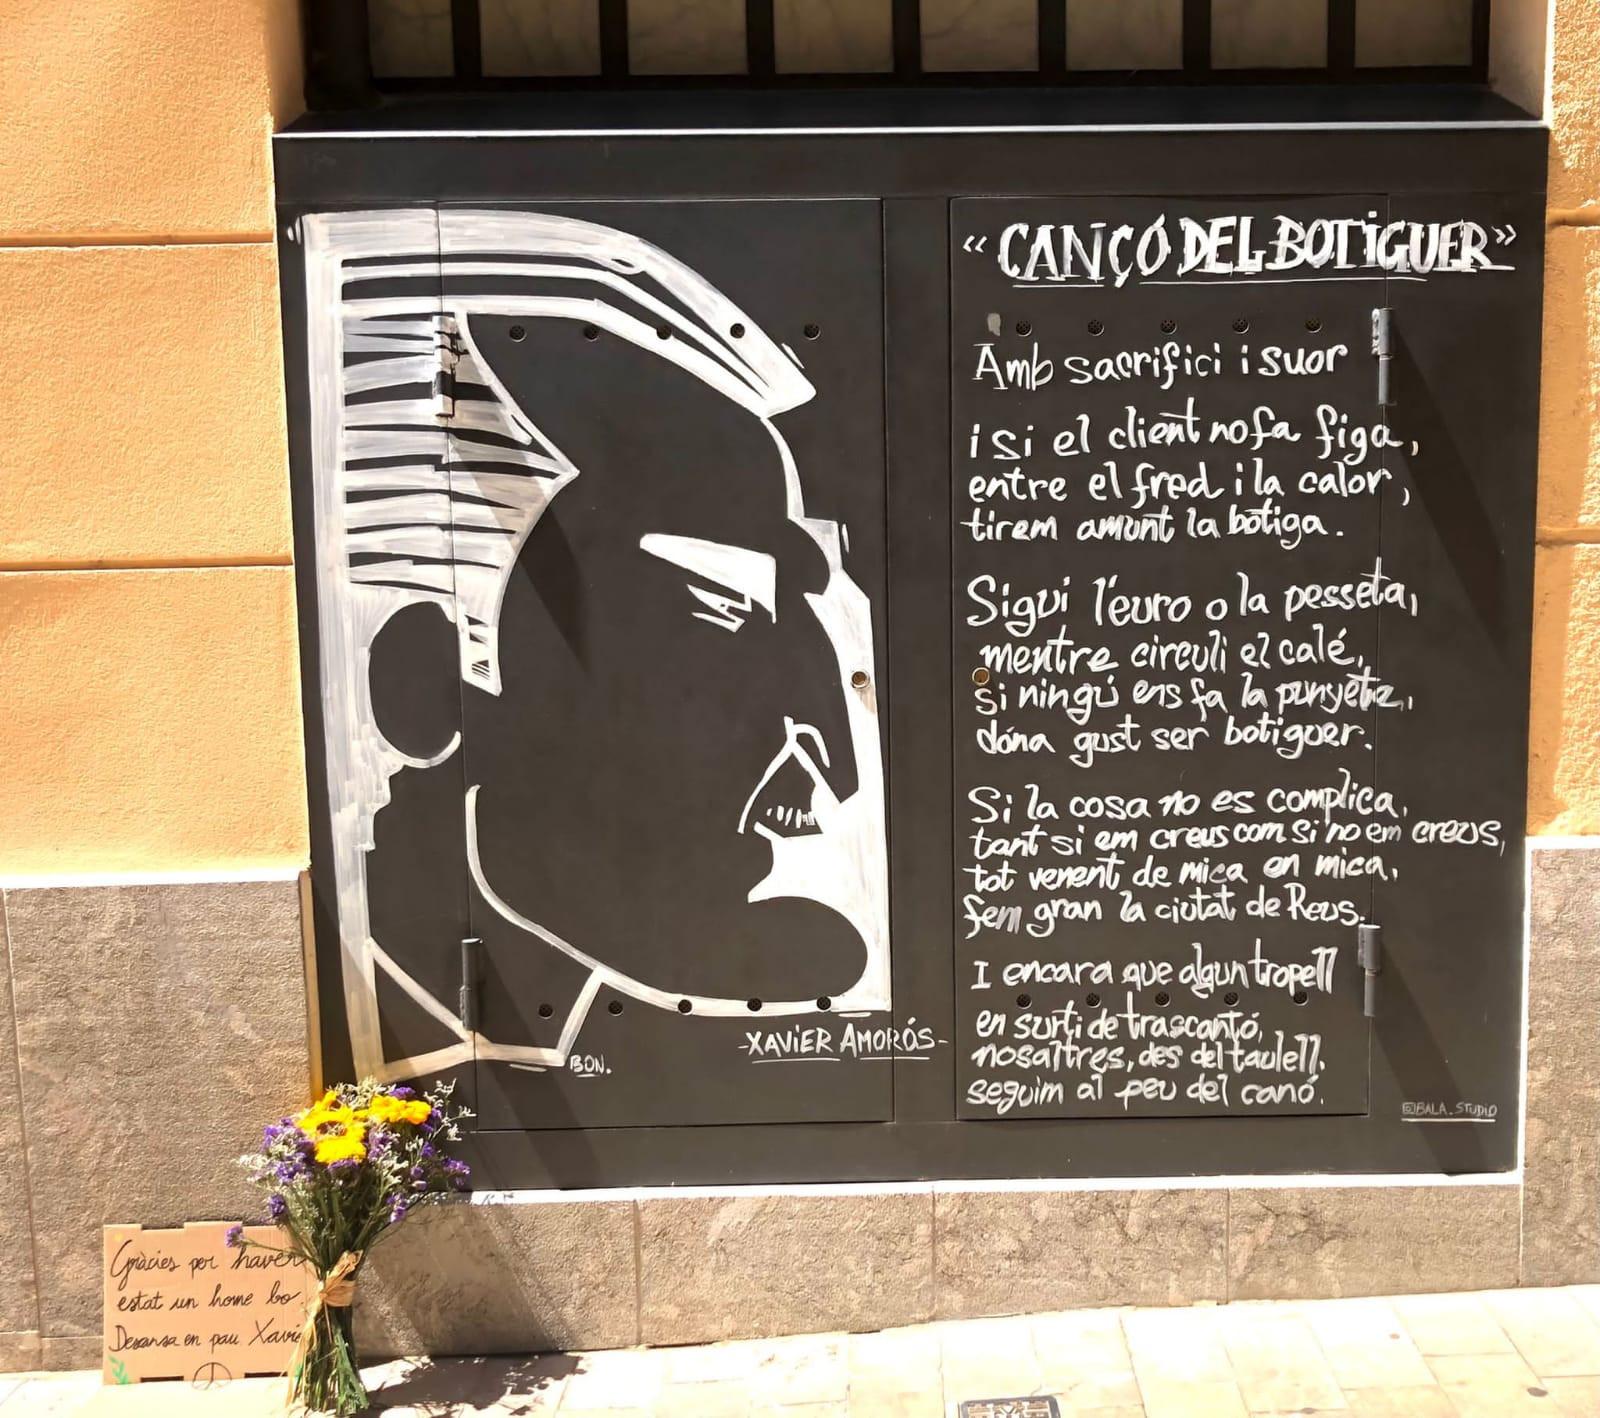 « CANÇÓ DEL BOTIGUER »
Amb sacrifici i suor
i si el client no fa figa,
entre el fred i la calor,
tirem amunt la botiga.
Sigui l'euro o la pesseta,
mentre circuli el calé,
si ningú ens fa la punyeta,
dóna gust ser botiguer.
Si la cosa no es complica,
tant si em creus com si no em creus,
tot venent de mica en mica,
fem gran la ciutat de Reus.
I encara que algun tropell
en surti de trascantó,
nosaltres, des del taulell,
seguim al peu del canó.
-XAVIER AMORÓS-
BON.
@BALA_STUDIO
Gràcies per haver
estat un home bo
Descansa en pau Xavie